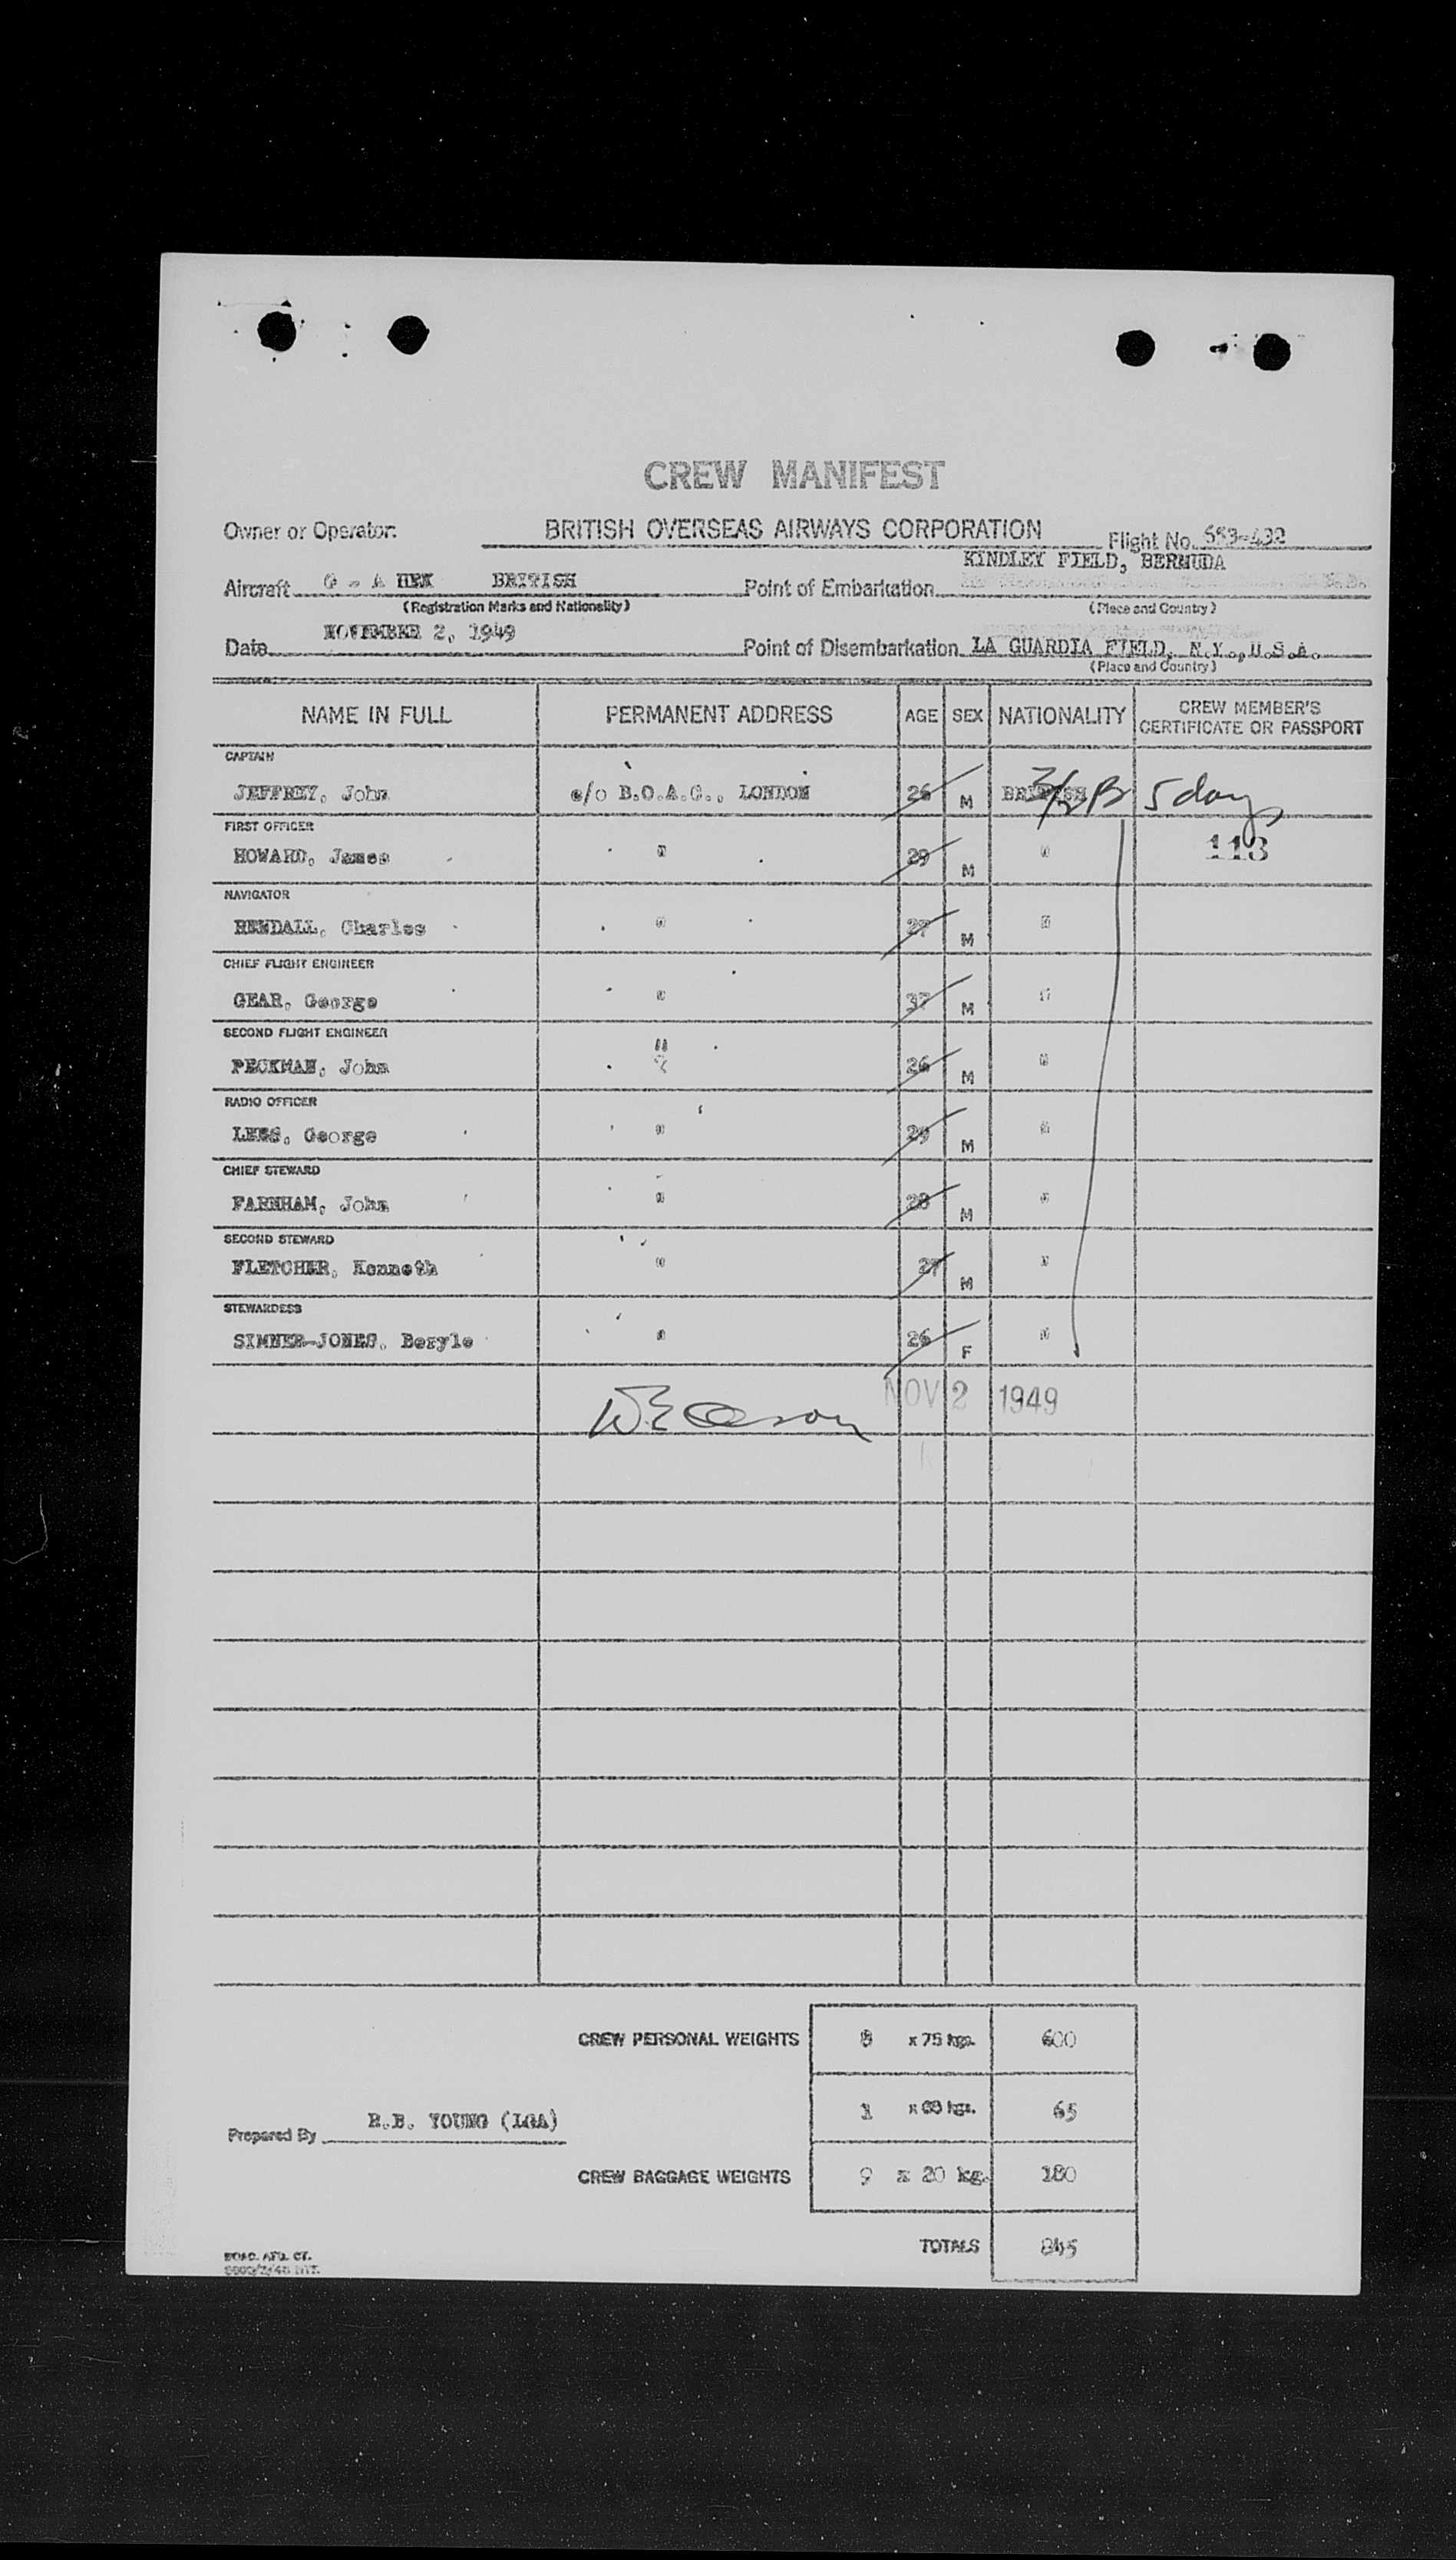 CREW MANIFEST
Owner or Operator: BRITISH OVERSEAS AIRWAYS CORPORATION Flight No.
KINDLEY FIELD, BERMUDA
Aircraft G - A HEK BRITISH Point of Embarkation
(Registration Marks and Nationality) (Place and Country)
Date NOVEMBER 2, 1949 Point of Disembarkation LA GUARDIA FIELD, N.Y., U.S.A.
(Place and Country)
NAME IN FULL PERMANENT ADDRESS AGE SEX NATIONALITY CREW MEMBER'S CERTIFICATE OR PASSPORT
CAPTAIN
JEFFREY, John c/o B.O.A.C., LONDON 26 M BRITISH 5 days
FIRST OFFICER
HOWARD, James " 29 M " 113
NAVIGATOR
RENDALL, Charles " 27 M "
CHIEF FLIGHT ENGINEER
GEAR, George " 37 M "
SECOND FLIGHT ENGINEER
PECKMAN, John " 26 M "
RADIO OFFICER
LEES, George " 29 M "
CHIEF STEWARD
FARNHAM, John " 28 M "
SECOND STEWARD
FLETCHER, Kenneth " 27 M "
STEWARDESS
SIMNER-JONES, Beryle " 26 F "
NOV 2 1949
CREW PERSONAL WEIGHTS 8 x 75 kgs. 600
1 65
Prepared By R.B. YOUNG (LGA)
CREW BAGGAGE WEIGHTS 9 x 20 kg. 180
TOTALS 845